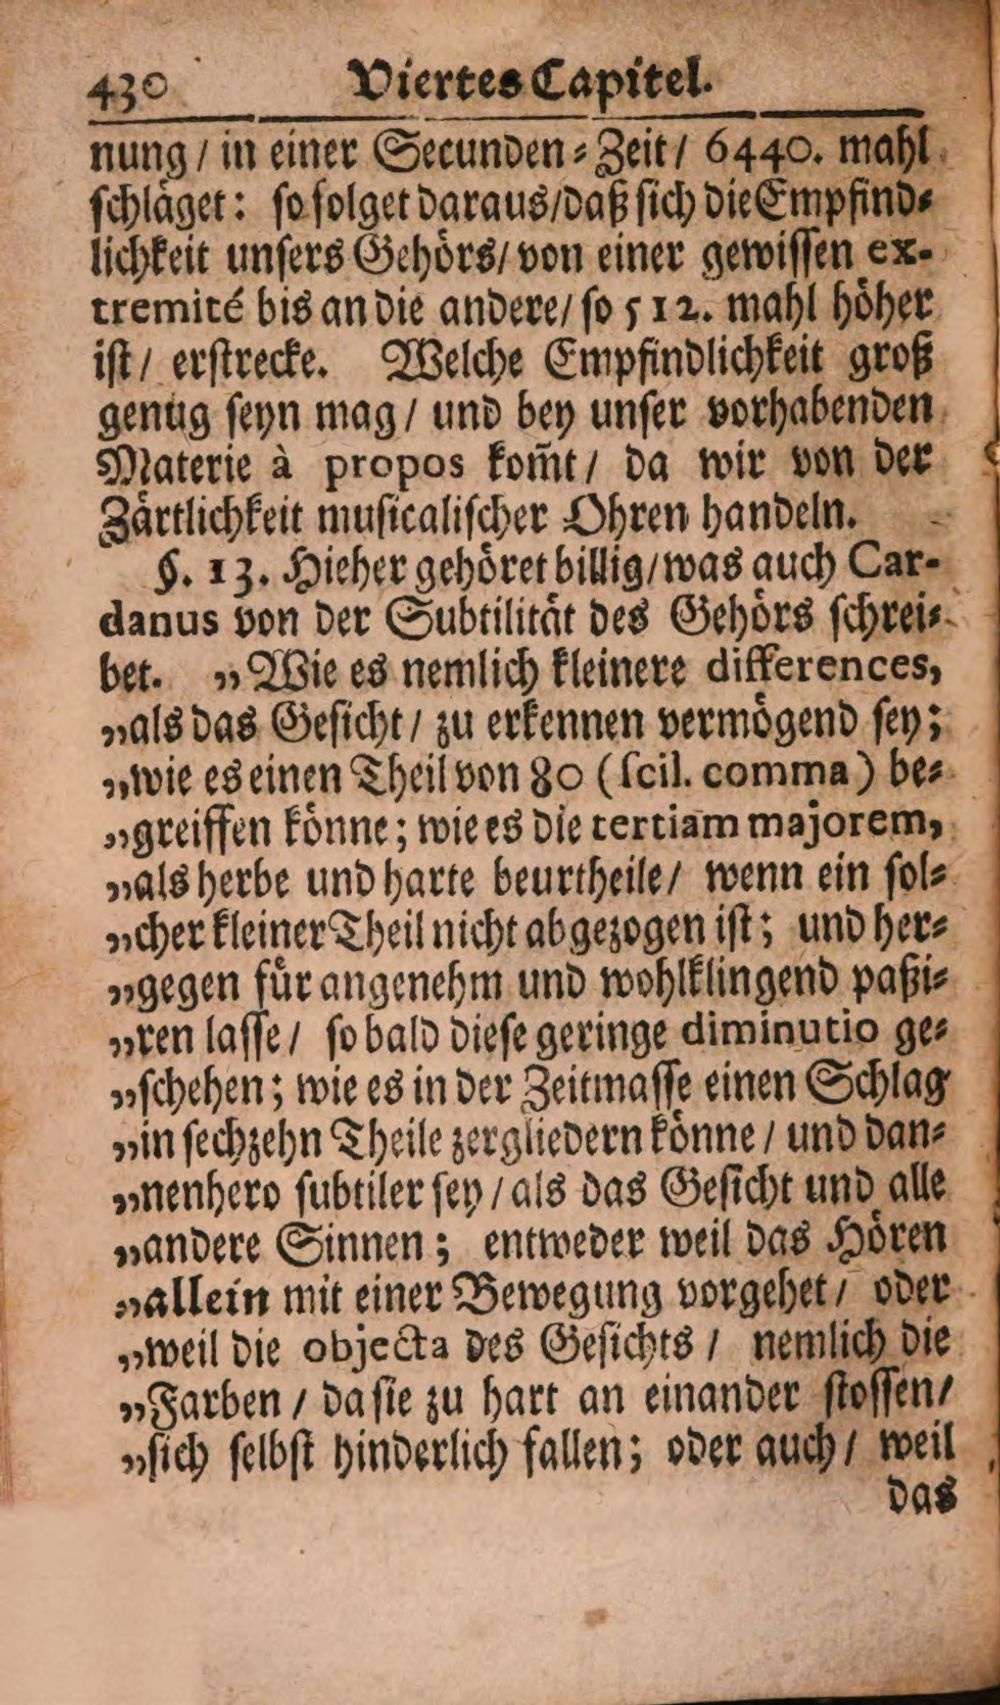 430 Viertes Capitel.
nung / in einer Secunden-Zeit / 6440. mahl
schläget: so folget daraus/daß sich die Empfind-
lichkeit unsers Gehörs/ von einer gewissen ex-
tremité bis an die andere/ so 512. mahl höher
ist / erstrecke. Welche Empfindlichkeit groß
genug seyn mag / und bey unser vorhabenden
Materie à propos kom̃t / da wir von der
Zärtlichkeit musicalischer Ohren handeln.
§. 13. Hieher gehöret billig/was auch Car-
danus von der Subtilität des Gehörs schrei-
bet. „Wie es nemlich kleinere differences,
„als das Gesicht / zu erkennen vermögend sey;
„wie es einen Theil von 80 (scil. comma) be-
„greiffen könne; wie es die tertiam majorem,
„als herbe und harte beurtheile/ wenn ein sol-
„cher kleiner Theil nicht abgezogen ist; und her-
„gegen für angenehm und wohlklingend paßi-
„ren lasse / so bald diese geringe diminutio ge-
„schehen; wie es in der Zeitmasse einen Schlag
„in sechzehn Theile zergliedern könne / und dan-
„nenhero subtiler sey / als das Gesicht und alle
„andere Sinnen; entweder weil das Hören
„allein mit einer Bewegung vorgehet / oder
„weil die objecta des Gesichts / nemlich die
„Farben / da sie zu hart an einander stossen/
„sich selbst hinderlich fallen; oder auch / weil
das